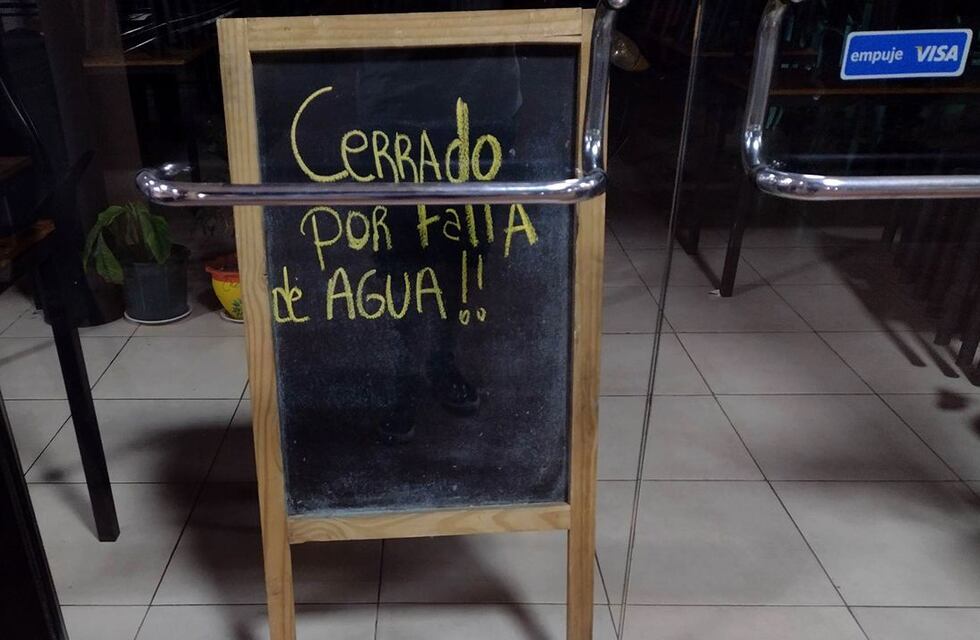 CERRAdo
POR FAllA
de AGUA!!
empuje VISA